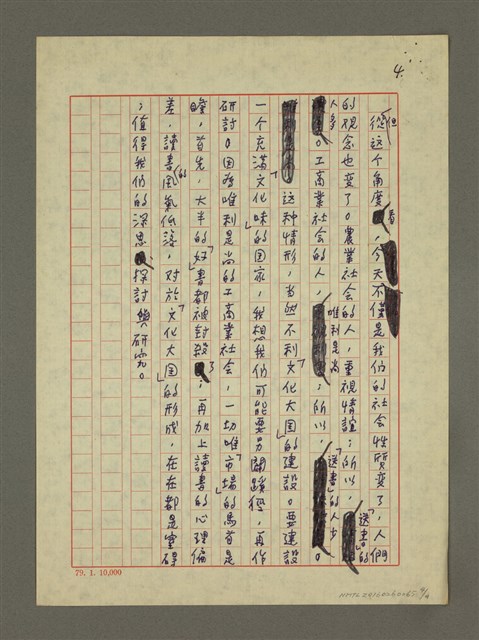 4.
但從这个角度看，今天不僅是我们的社会性質变了，人們
的观念也变了。農業社会的人，重視情誼；所以，「送書」的
人多。工商業社会的人，唯利是尚；所以，「送書」的人少。
这种情形，当然不利「文化大国」的建設。要建設
一个充滿「文化味」的国家，我想我们可能要另闢蹊徑，再作
研討。因為唯利是尚的工商業社会，一切唯「市場」的馬首是
瞻，首先，大半的「好」書都被封殺了；再加上讀書的心理偏
差，讀書的風氣低落，对於「文化大国」的形成，在在都是窒碍
；值得我们的深思、探討與研究。
79. 1. 10,000